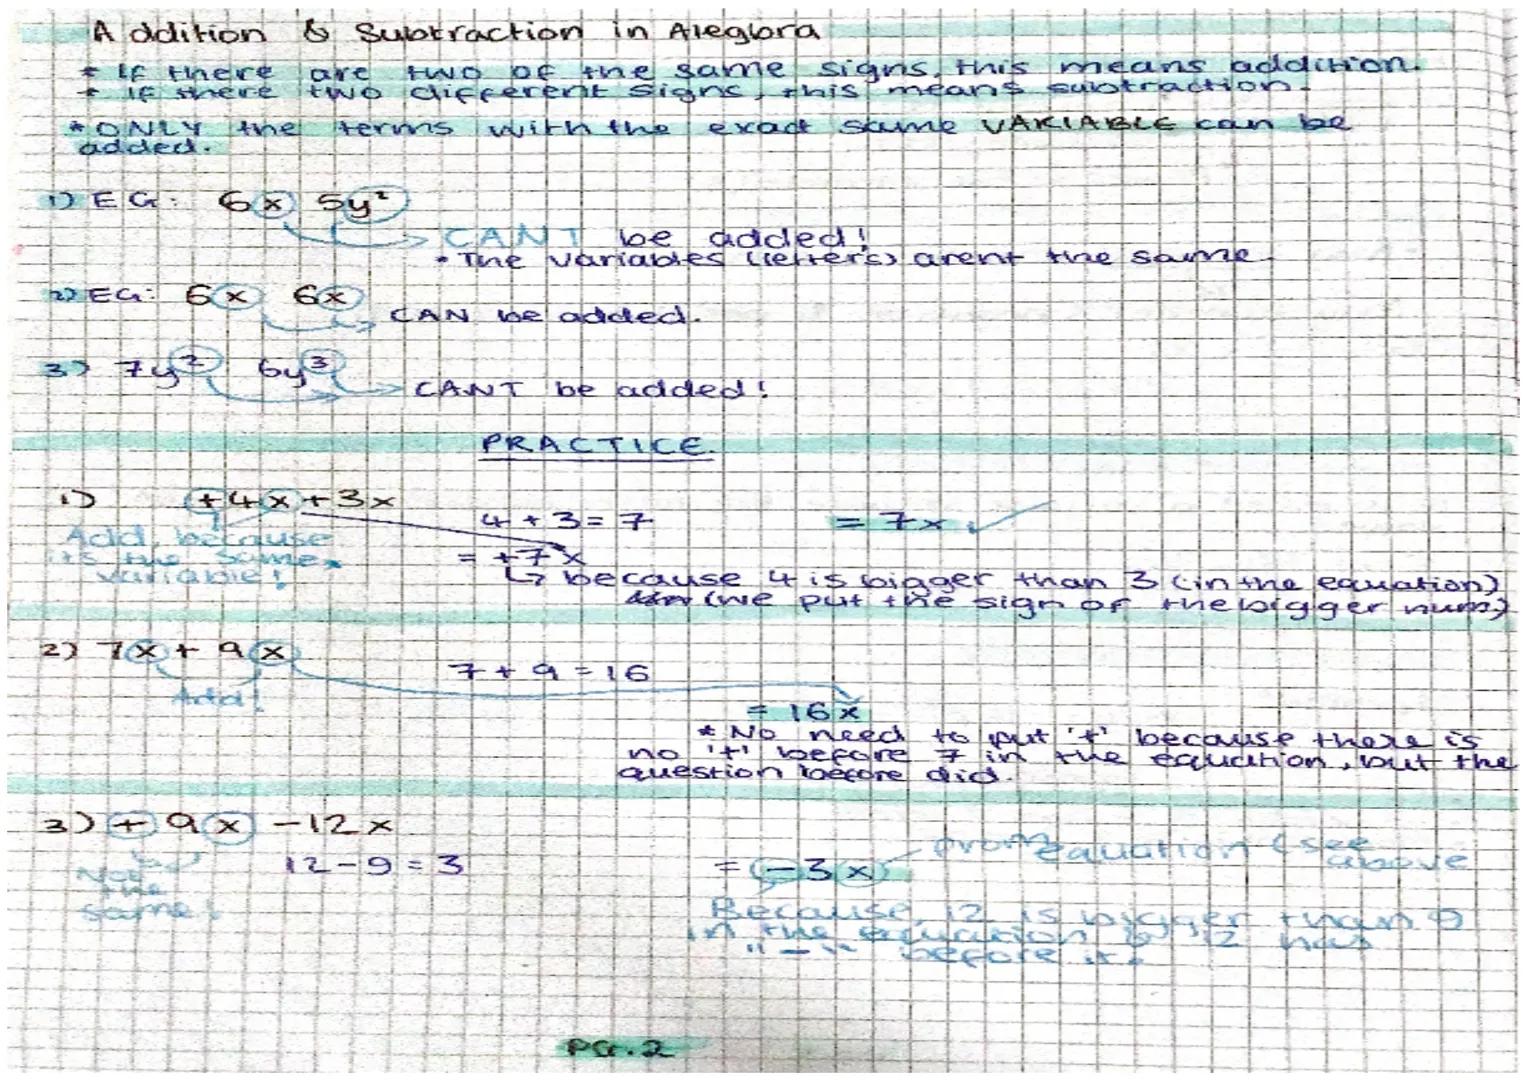 Addition & Subtraction in Aleglbra
* If there are two of the same signs, this means addition.
* If there two different signs, this means subtraction.
* ONLY the terms with the exact same VARIABLE can be
added.
1) EG: 6x 5y²
CANT be added!
• The variables (letters) arent the same
2) EG: 6x 6x
CAN be added.
3) 7y² 6y³
CANT be added!
PRACTICE.
1) +4x+3x
4+3=7 = 7x ✓
Add, because
its the same
variable!
= +7x
↳ because 4 is bigger than 3 (in the equation)
(we put the sign of the bigger num)
2) 7x + 9x
7+9=16
Add!
= 16x
* No need to put '+' because there is
no '+' before 7 in the equation, but the
question before did.
3) +9x -12x
12-9=3
Not
the
same!
= -3x
from equation (see
above
Because, 12 is bigger than 9
in the equation & 12 has
"-" before it.
PG.2